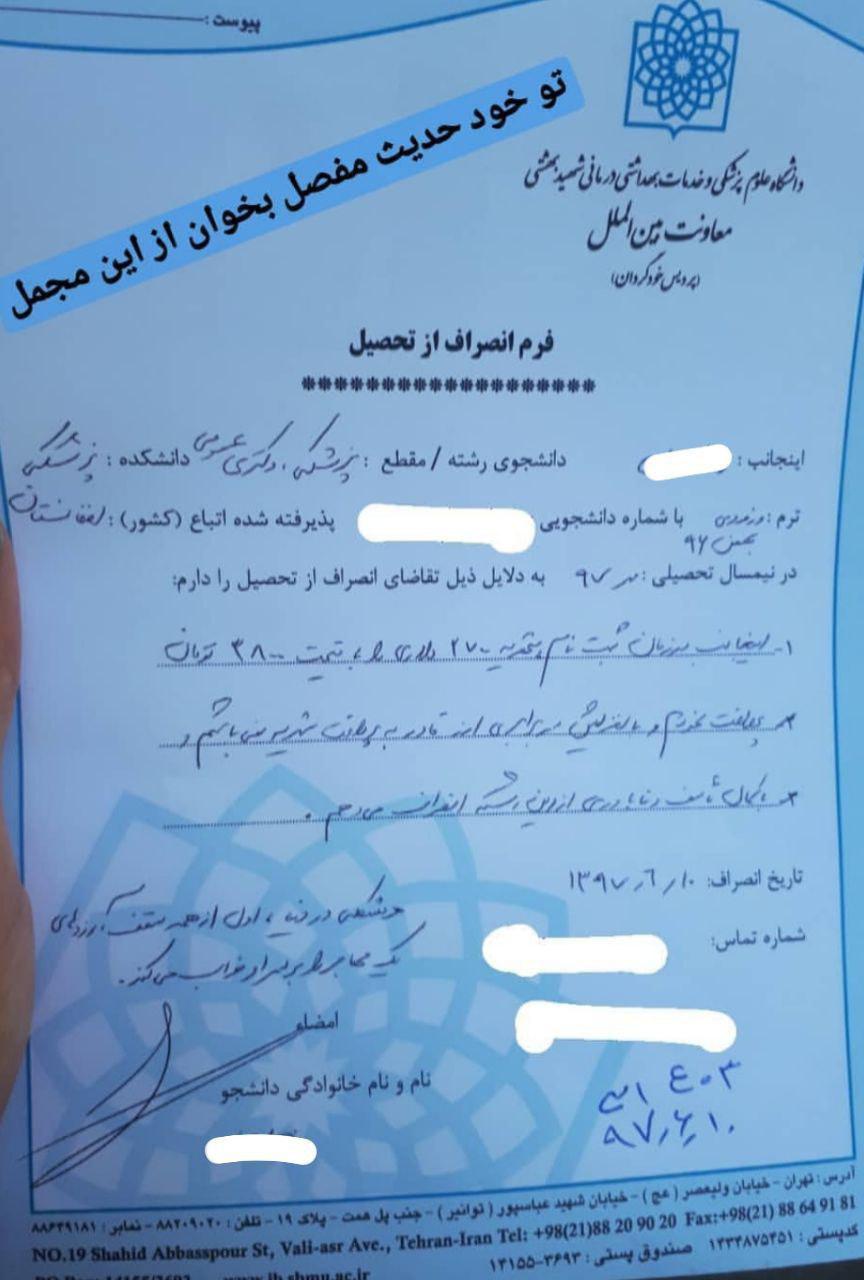 پیوست:
تو خود حدیث مفصل بخوان از این مجمل
دانشگاه علوم پزشکی و خدمات بهداشتی درمانی شهید بهشتی
معاونت بین الملل
(پردیس خودگردان)
فرم انصراف از تحصیل
*******************
اینجانب: دانشجوی رشته / مقطع: پزشکی، دکتری عمومی دانشکده: پزشکی
ترم: ورودی بهمن ۹۶ با شماره دانشجویی پذیرفته شده اتباع (کشور): افغانستان
در نیمسال تحصیلی: مهر ۹۷ به دلایل ذیل تقاضای انصراف از تحصیل را دارم:
۱- اینجانب در زمان ثبت نام شهریه ۲۷۰۰ دلاری را با قیمت ۳۸۰۰ تومان
۲- پرداخت نمودم و با افزایش برابری ارز قادر به پرداخت شهریه نمی باشم و
۳- با کمال تأسف و ناباوری از این رشته انصراف می دهم.
تاریخ انصراف: ۱۳۹۷/۶/۱۰
هر مشکلی در دنیا، اول از همه سقف آرزوهای
یک مهاجر را بر سر او خراب می کند.
شماره تماس:
امضاء
نام و نام خانوادگی دانشجو
۹۷/۶/۱۰
آدرس: تهران - خیابان ولیعصر (عج) - خیابان شهید عباسپور (توانیر) - جنب پل همت - پلاک ۱۹ - تلفن: ۸۸۲۰۹۰۲۰ - نمابر: ۸۸۶۴۹۱۸۱
NO.19 Shahid Abbasspour St, Vali-asr Ave., Tehran-Iran Tel: +98(21)88 20 90 20 Fax:+98(21) 88 64 91 81
کدپستی: ۱۴۳۴۸۷۵۴۵۱ صندوق پستی: ۳۶۹۳-۱۴۱۵۵